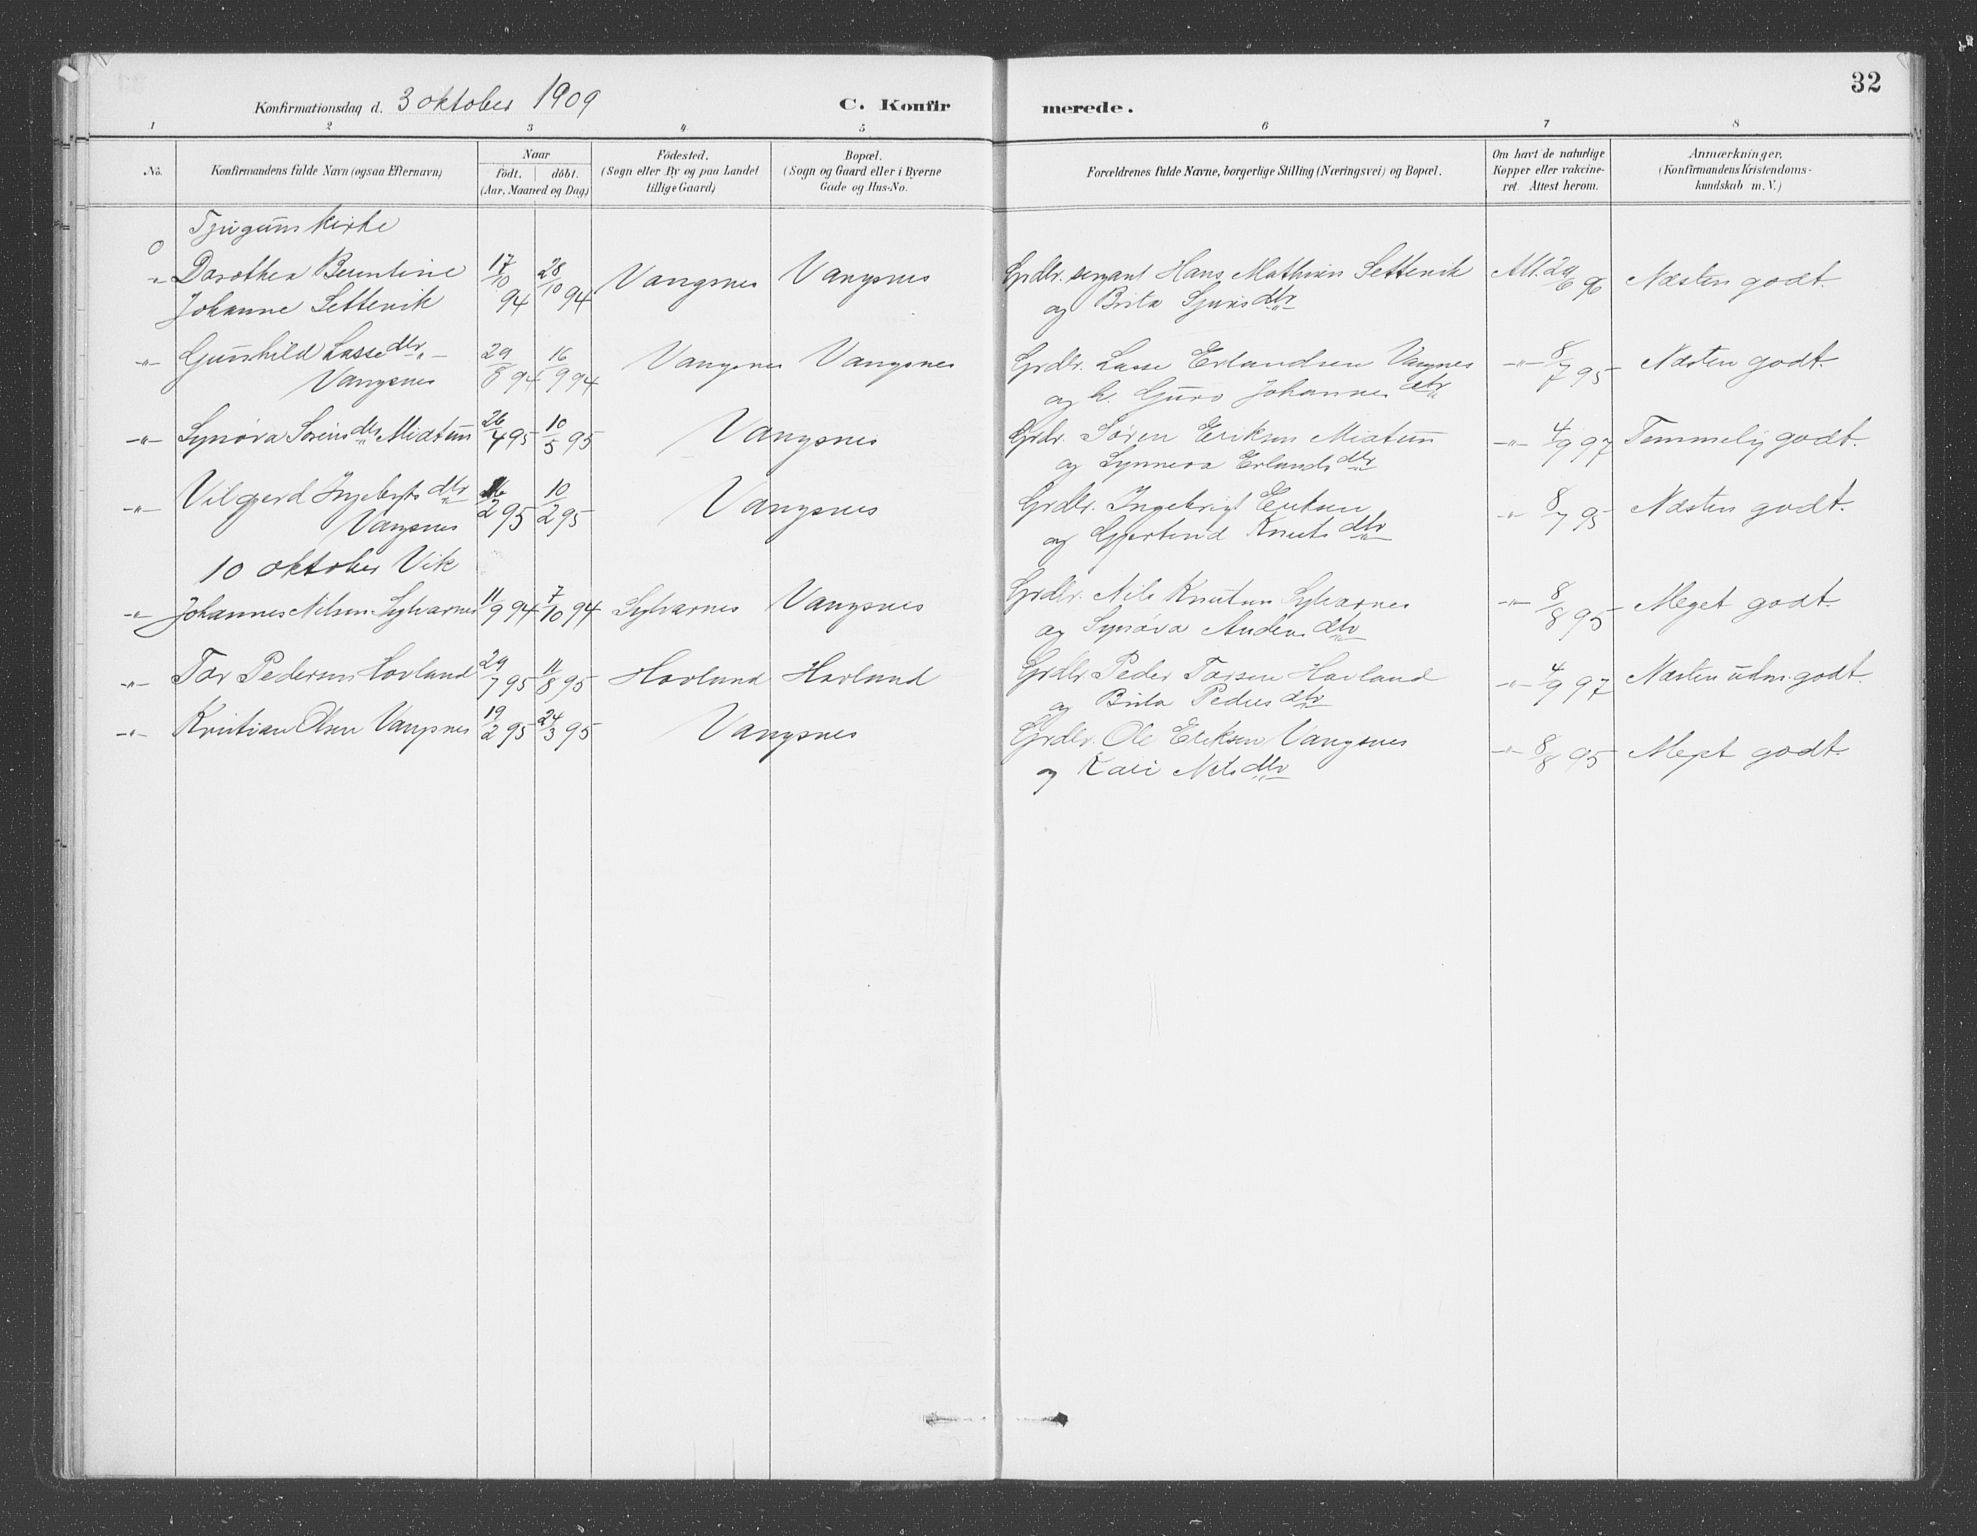 32
Konfirmationsdag d. 3 oktober 1909 C. Konfirmerede.
1 2 3 4 5 6 7 8
No. Konfirmandens fulde Navn (ogsaa Efternavn) Naar födt. döbt. (Aar, Maaned og Dag) Födested. (Sogn eller By og paa Landet tillige Gaard) Bopæl. (Sogn og Gaard eller i Byerne Gade og Hus-No. Forældrenes fulde Navne, borgerlige Stilling (Næringsvei) og Bopæl. Om havt de naturlige Kopper eller vakcineret. Attest herom. Anmærkninger, (Konfirmandens Kristendomskundskab m. V.)
Tjugum kirke
Dorothea Berntine 17/10 94 28/10 94 Vangsnes Vangsnes Grdbr. sergant Hans Mathias Settevik Att. 96 Næsten godt.
Johanne Settevik og Brita Sjursdtr
-"- Gunhild Lassedtr 29/8 94 16/9 94 Vangsnes Vangsnes Grdbr. Lasse Erlandsen Vangsnes -"- 8/7 95 Næsten godt.
Vangsnes og h. Guro Johannesdtr
-"- Synøva Sørensdtr Midtun 26/4 95 10/5 95 Vangsnes Grdbr. Søren Eriksen Midtun -"- 4/9 97 Temmelig godt.
og Synneva Erlandsdtr
-"- Vilgerd Ingebrgts dtr 2 95 10/2 95 Vangsnes Grdbr. Ingebrigt Eriksen -"- 8/7 95 Næsten godt.
Vangsnes og Gjertrud Knutsdtr
10 oktober Vik
-"- Johannes Nilsen Sylvarnes 11/9 94 7/10 94 Sylvarnes Vangsnes Grdbr. Nils Knutsen Sylvarnes -"- 8/8 95 Meget godt.
og Synøva Andersdtr
-"- Tor Pedersen Hovland 29/7 95 11/8 95 Hovland Hovland Grdbr Peder Torsen Hovland -"- 4/9 97 Næsten udm. godt.
og Brita Pedersdtr
-"- Kristian Olsen Vangsnes 19/2 95 24/3 95 Vangsnes Grdbr. Ole Eriksen Vangsnes -"- 8/8 95 Meget godt.
og Kari Nilsdtr